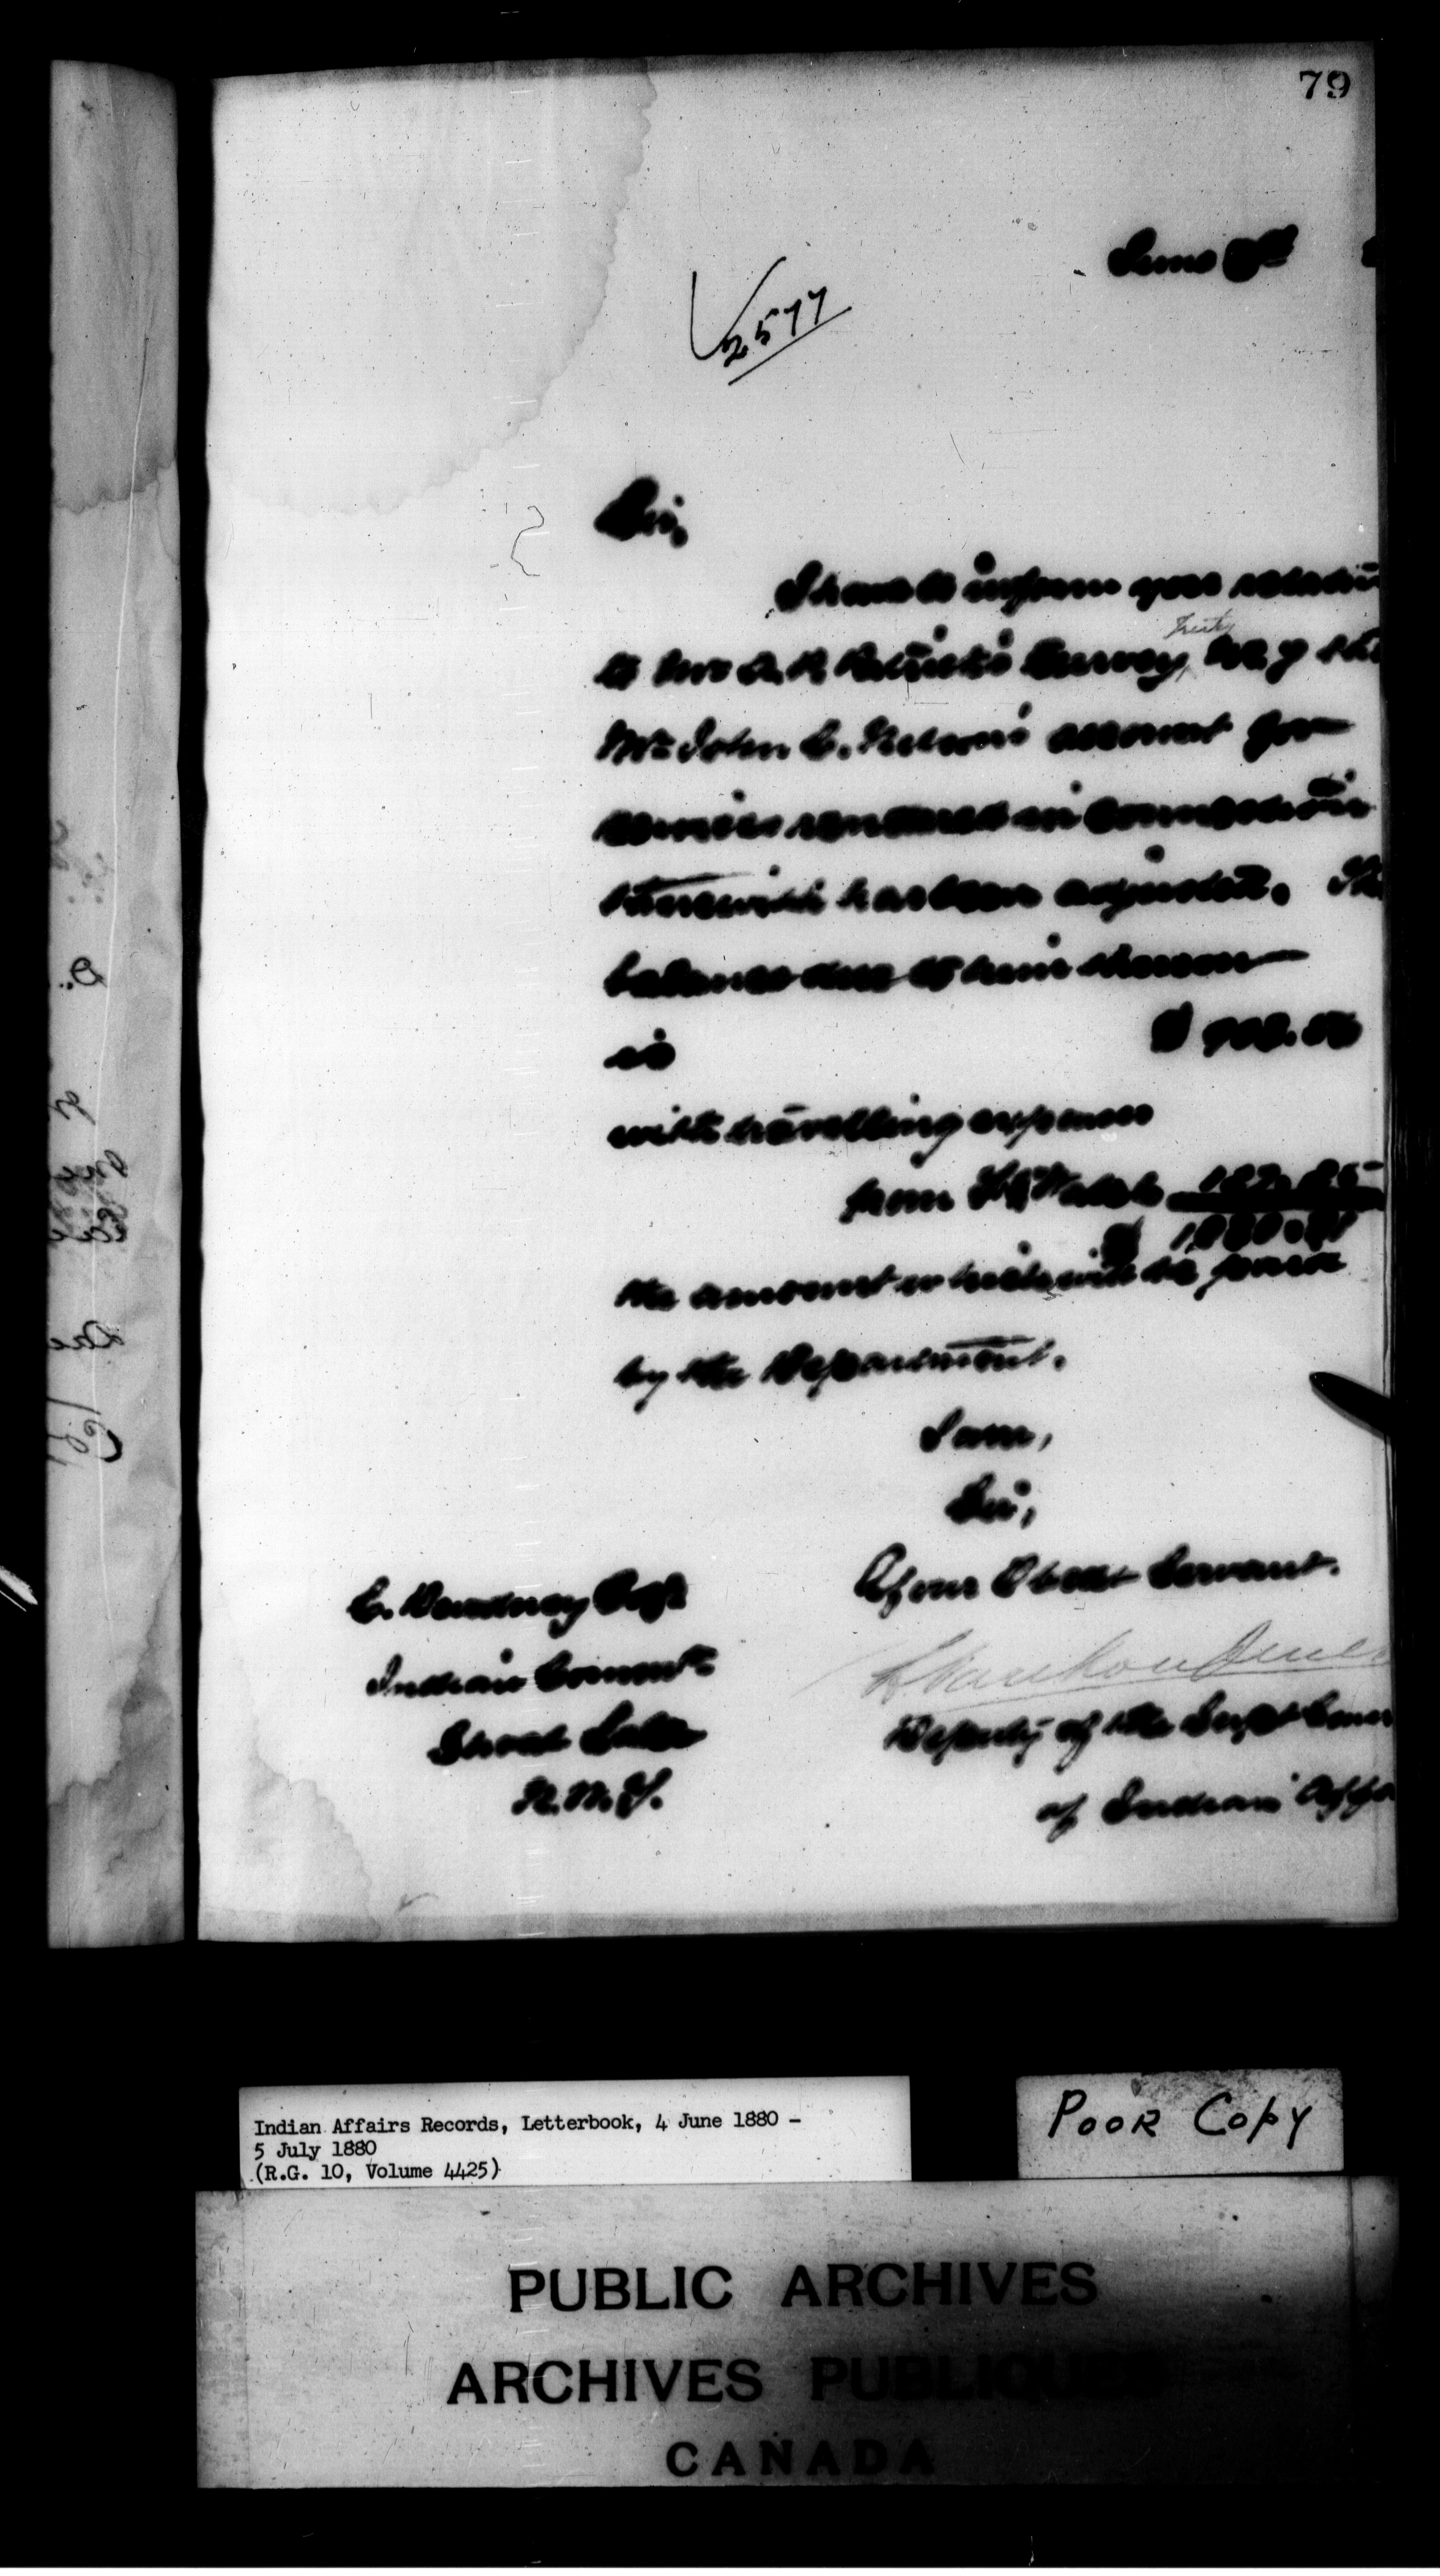 79
June
2577
Sir,
I have to inform you relative
to Mr A. P. Patrick's Survey, Treaty No 7 that
Mr John C. Nelson's account for
services rendered in connection
therewith has been adjusted. The
balance due to him thereon
is $
with travelling expenses
from Ft Walsh
$
the amount which will be paid
by the Department.
I am,
Sir,
Your Obedt Servant.
E. Dewdney Esqr
Indian Commr
Deputy of the Supt Genl
N.W.T.
of Indian Affa
Indian Affairs Records, Letterbook, 4 June 1880 -
5 July 1880
(R.G. 10, Volume 4425)
POOR COPY
PUBLIC ARCHIVES
ARCHIVES PUBLIQUES
CANADA